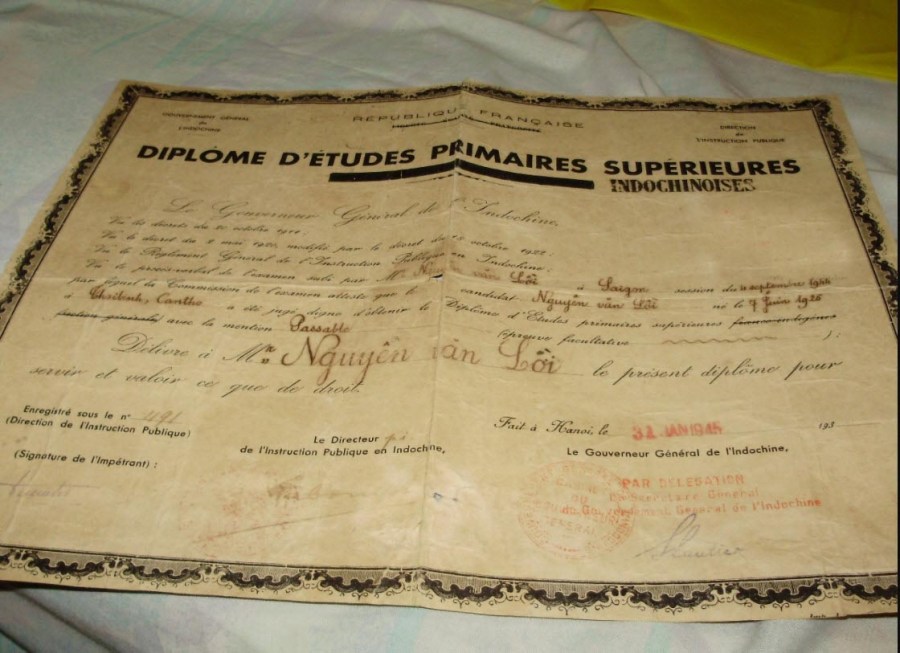 GOUVERNEMENT GÉNÉRAL
de
L'INDOCHINE
RÉPUBLIQUE FRANÇAISE
DIRECTION
de
L'INSTRUCTION PUBLIQUE
DIPLÔME D'ÉTUDES PRIMAIRES SUPÉRIEURES
INDOCHINOISES
Le Gouverneur Général de l'Indochine,
Vu les décrets du 20 octobre 1911;
Vu le décret du 2 mai 1920, modifié par le décret du octobre 1922;
Vu le Règlement Général de l'Instruction Publique en Indochine;
Vu le procès-verbal de l'examen subi par M. Nguyễn văn Lôi à Saigon session du 11 septembre 1944
par lequel la Commission de l'examen atteste que le candidat Nguyễn văn Lôi né le 7 Juin 1926
à Cantho a été jugé digne d'obtenir le Diplôme d'Études primaires supérieures franco-indigènes
(section générale) avec la mention Passable (épreuve facultative ):
Délivre à M Nguyễn văn Lôi le présent diplôme pour
servir et valoir ce que de droit.
Enregistré sous le n° 491
(Direction de l'Instruction Publique)
(Signature de l'Impétrant) :
Le Directeur
de l'Instruction Publique en Indochine,
Fait à Hanoi, le 31 JAN 1945 193
Le Gouverneur Général de l'Indochine,
PAR DÉLÉGATION
Le Secrétaire Général
du Gouvernement Général de l'Indochine